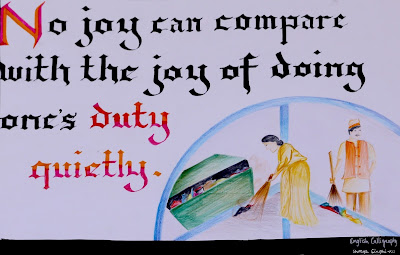 No joy can compare
with the joy of doing
one's duty
quietly.
English Calligraphy